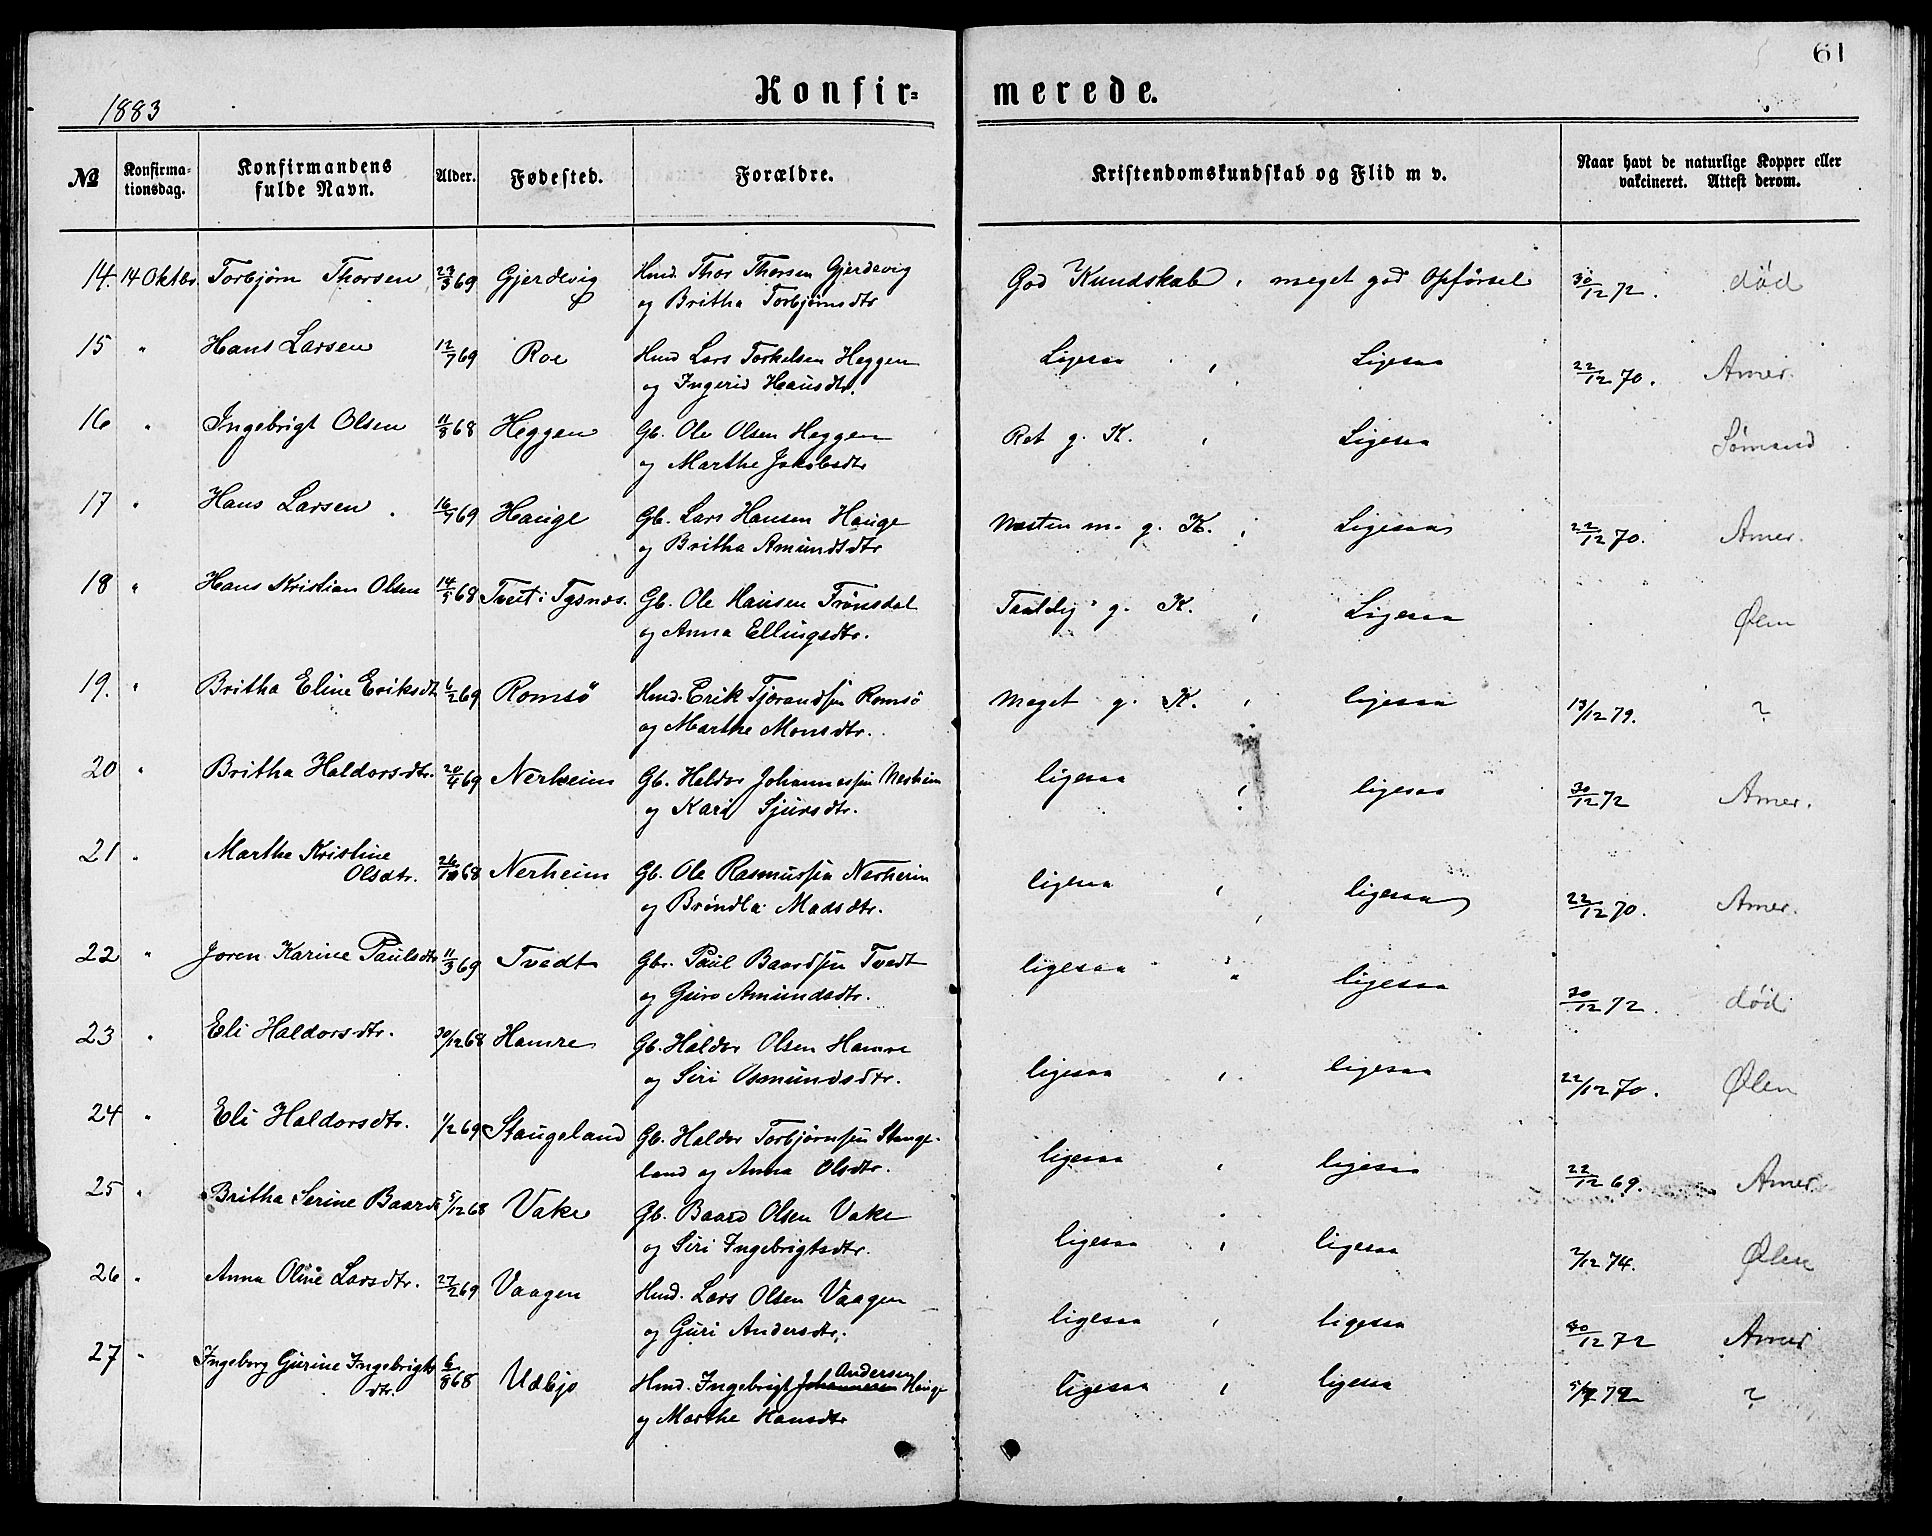 61
Konfir= merede.
1883
№ Konfirma-tionsdag. Konfirmandens fulde Navn. Alder. Fødested. Forældre. Kristendomskundskab og Flid m v. Naar havt de naturlige Kopper eller vakcineret. Attest derom.
14. 14 Oktbr. Torbjørn Thorsen 23/3 69 Gjerdevig Hmd. Thor Thorsen Gjerdevig God Kundskab, meget god Opførsel 30/12 72. død
og Britha Torbjørnsdtr
15 " Hans Larsen 12/7 69 Roe Hmd Lars Torkelsen Heggen Ligesaa , Ligesaa 22/12 70. Amer.
og Ingerid Hansdtr.
16 " Ingebrigt Olsen 11/8 68 Heggen Gb. Ole Olsen Heggen Ret g. K. , Ligesaa Sømand
og Marthe Jakobsdtr
17 " Hans Larsen . 16/7 69 Hauge Gb. Lars Hansen Hauge Næsten m. g. K. , Ligesaa 22/12 70. Amer.
og Britha Amundsdtr
18 " Hans Kristian Olsen 14/5 68 Tveit i Tysnes. Gb. Ole Hansen Frønsdal Taalelig g. K. , Ligesaa Ølen
og Anna Ellingsdtr.
19. " Britha Eline Eriksdt 6/2 69 Romsö Hmd. Erik Tjorandsen Romsö Meget g. K. , ligesaa 13/12 79. ?
og Marthe Monsdtr.
20 " Britha Haldorsdtr. 20/4 69 Nerheim Gb. Haldor Johannessen Nerheim ligesaa , ligesaa 30/12 72 Amer.
og Kari Sjursdtr.
21 " Marthe Kristine 26/10 68 Nerheim Gb. Ole Rasmussen Nerheim ligesaa , ligesaa 22/12 70. Amer.
Olsdtr. og Bröndla Madsdtr.
22 " Joren Karine Paulsdtr 11/3 69 Tvedt Gbr. Paul Baardsen Tvedt ligesaa " ligesaa 30/12 72. død
og Guro Amundsdtr.
23 " Eli Haldorsdtr. 30/12 68 Hamre Gb. Haldor Olsen Hamre ligesaa , ligesaa 22/12 70. Ølen
og Siri Osmundsdtr.
24 " Eli Haldorsdtr. 1/2 69 Stangeland Gb. Haldor Torbjørnsen Stange- ligesaa , ligesaa 22/12 69. Amer.
land og Anna Olsdtr.
25 " Britha Serine Baards 5/12 68 Vake Gb. Baard Olsen Vake ligesaa , ligesaa 2/12 74. Ølen
og Siri Ingebrigtsdtr.
26 " Anna Oline Larsdtr. 27/2 69 Vaagen Hmd. Lars Olsen Vaagen ligesaa , ligesaa 30/12 72 Amer
og Guri Andersdtr.
27 " Ingeborg Gurine Ingebrigts 6/8 68 Udbjo Hmd. Ingebrigt Johannessen Andersen Hauge ligesaa , ligesaa 72 ?
dtr. og Marthe Hansdtr